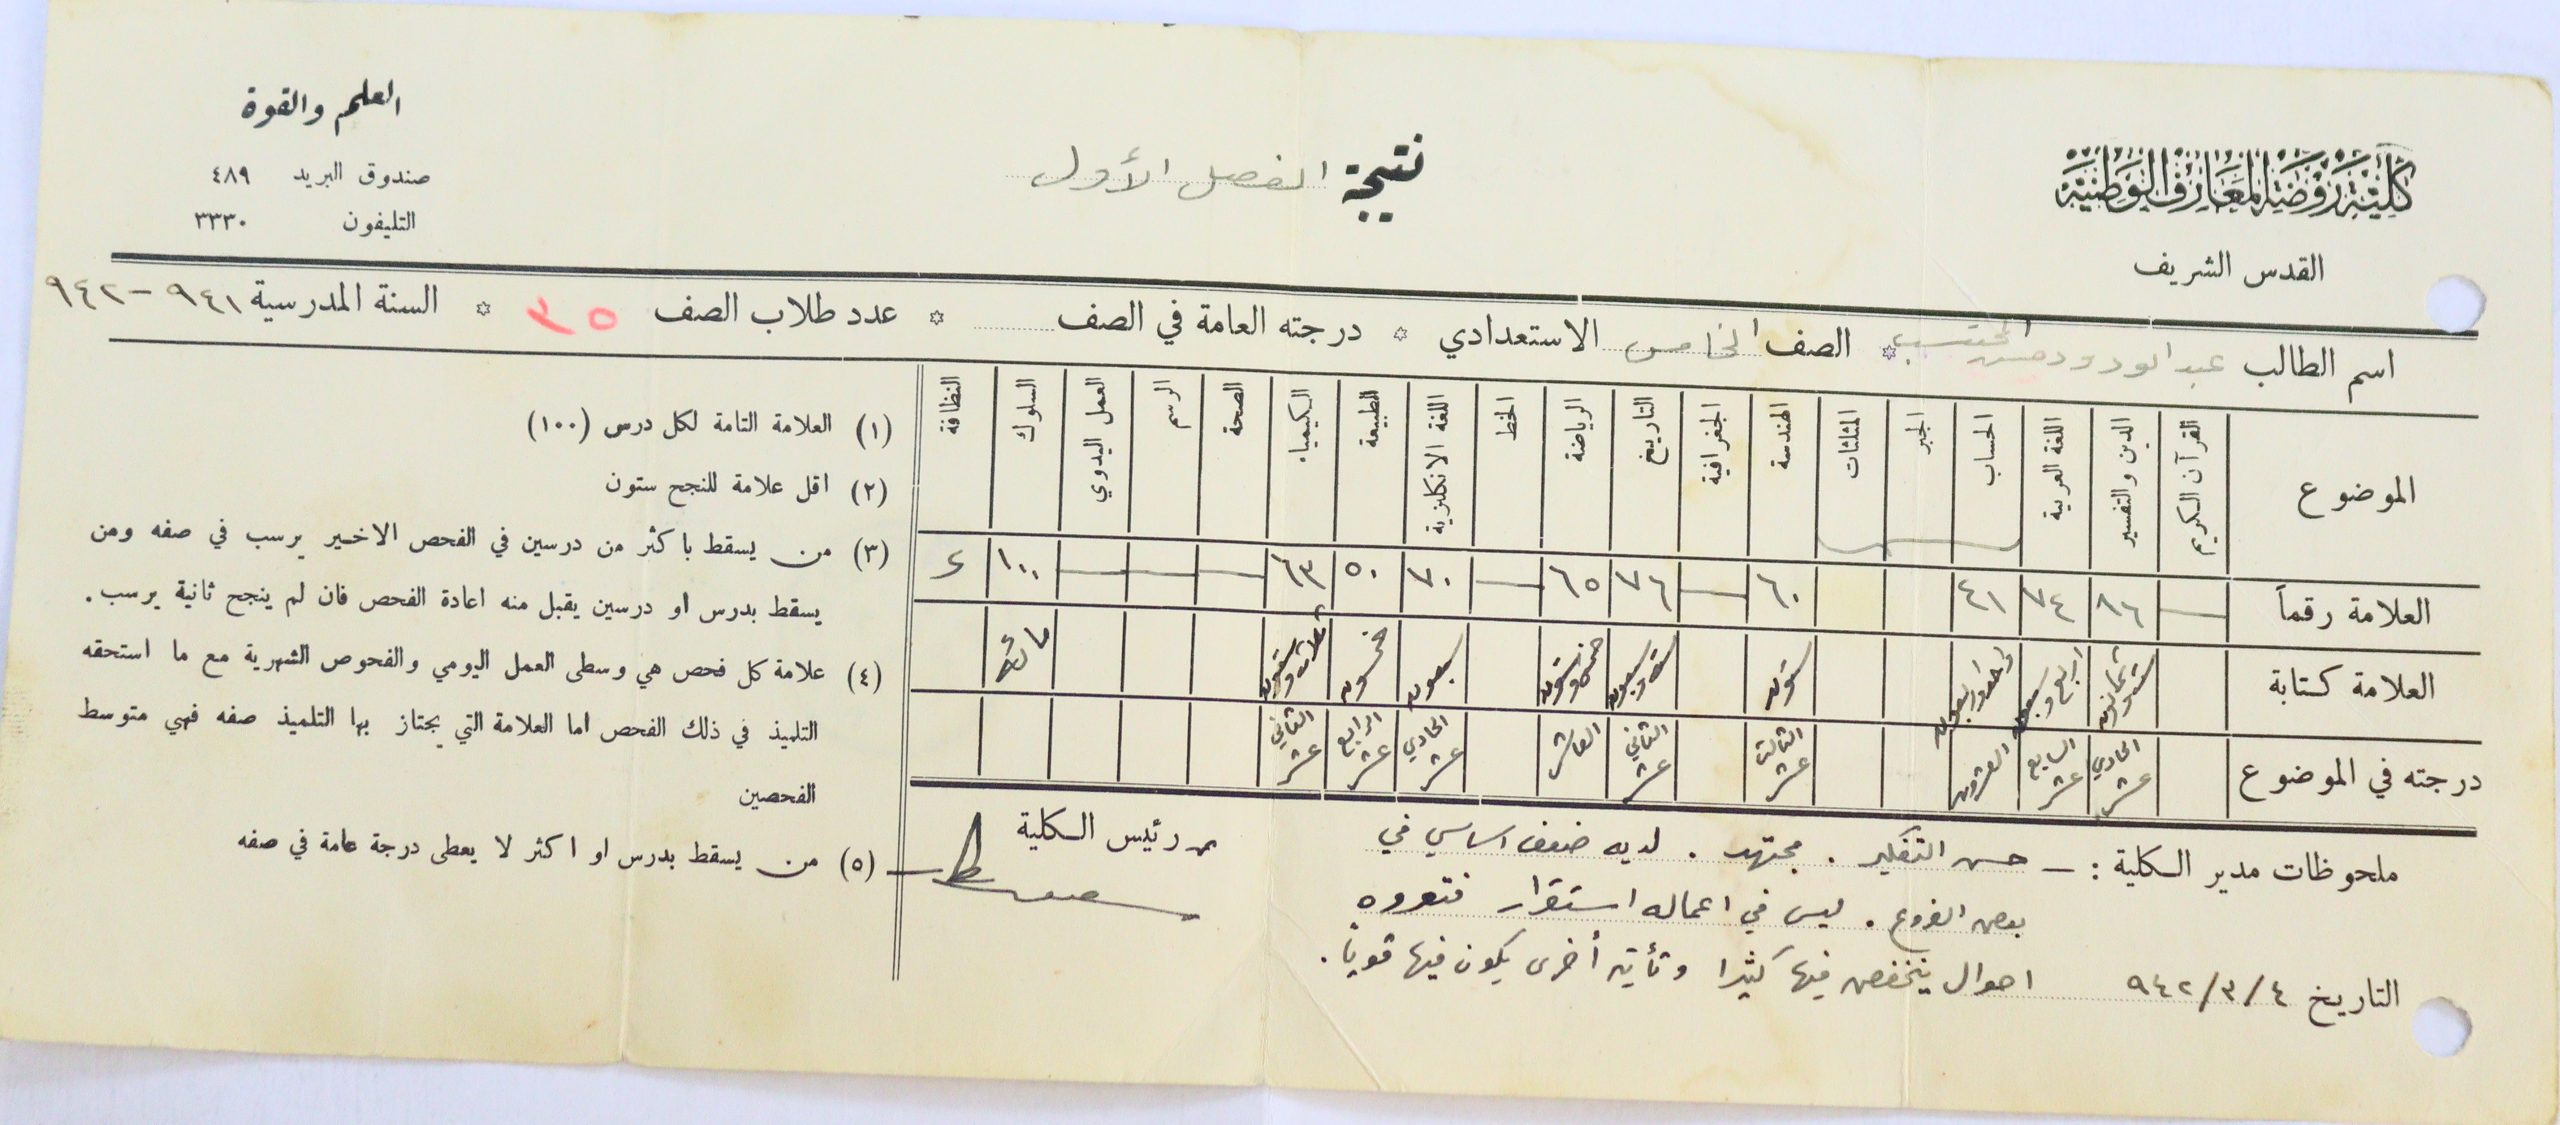 كلية روضة المعارف الوطنية
القدس الشريف
نتيجة الفصل الأول
العلم والقوة
صندوق البريد ٤٨٩
التليفون ٣٣٣٠
اسم الطالب عبد الودود حسن المحتسب * الصف الخامس الاستعدادي * درجته العامة في الصف * عدد طلاب الصف ٣٥ * السنة المدرسية ٩٤١ - ٩٤٢
الموضوع القرآن الكريم الدين والتفسير اللغة العربية الحساب الجبر المثلثات الهندسة الجغرافية التاريخ الرياضة الخط اللغة الانكليزية الطبيعة الكيمياء الصحة الرسم العمل اليدوي السلوك النظافة
العلامة رقماً — ٨٦ ٧٤ ٤١ ٦٠ — ٧٦ ٦٥ — ٧٠ ٥٠ ٦٣ — — — ١٠٠
العلامة كتابة ستة وثمانون اربع وسبعون واحد واربعون ستون ستة وسبعون خمس وستون سبعون خمسون ثلاثة وستون مائة
درجته في الموضوع الحادي عشر السابع عشر العشرون الثالث عشر الثاني عشر العاشر الحادي عشر الرابع عشر الثاني عشر
ملحوظات مدير الكلية : — حسن التفكير . مجتهد . لديه ضعف اساسي في
بعض الفروع . ليس في اعماله استقرار فتعروه
احوال ينخفض فيها كثيرا وتأتيه أخرى يكون فيها قوياً .
التاريخ ٤/٣/٩٤٢
رئيس الكلية
(١) العلامة التامة لكل درس (١٠٠)
(٢) اقل علامة للنجح ستون
(٣) من يسقط باكثر من درسين في الفحص الاخير يرسب في صفه ومن
يسقط بدرس او درسين يقبل منه اعادة الفحص فان لم ينجح ثانية يرسب .
(٤) علامة كل فحص هي وسطى العمل اليومي والفحوص الشهرية مع ما استحقه
التلميذ في ذلك الفحص اما العلامة التي يجتاز بها التلميذ صفه فهي متوسط
الفحصين
(٥) من يسقط بدرس او اكثر لا يعطى درجة عامة في صفه